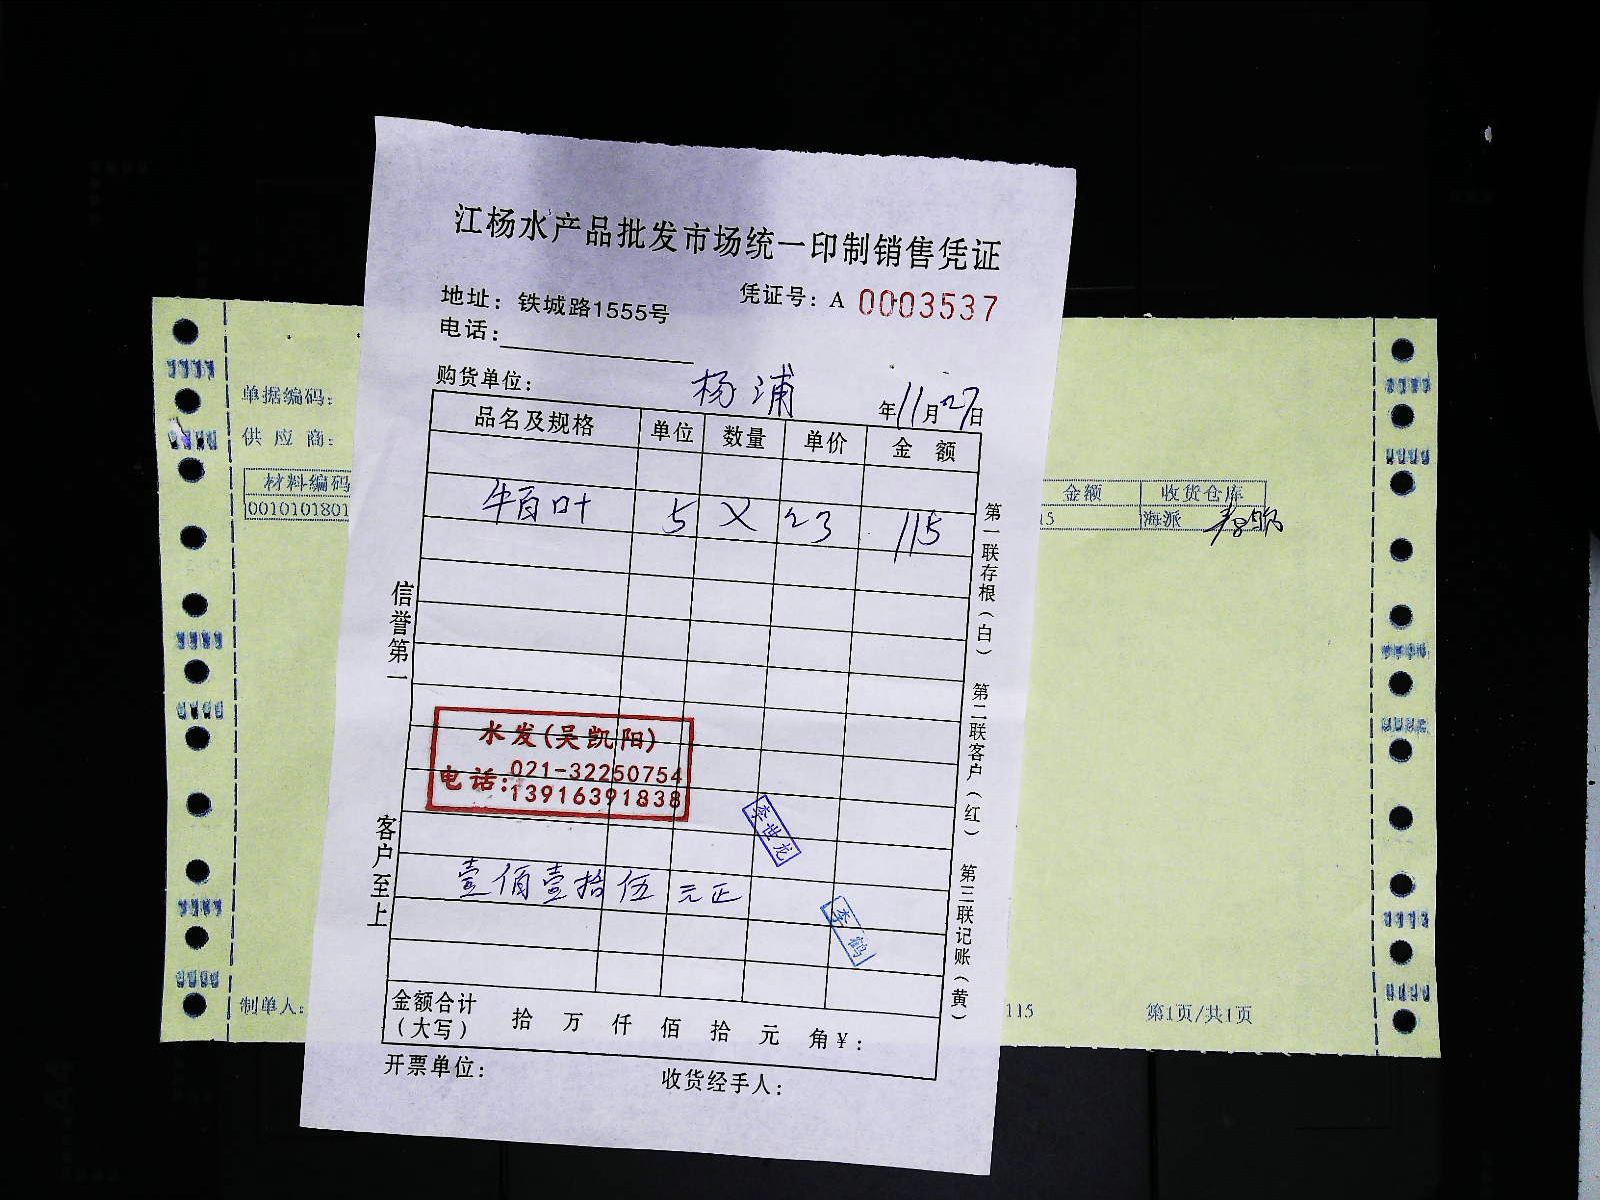 江杨水产品批发市场统一印制销售凭证
地址：铁城路1555号
凭证号：A 0003537
电话：
购货单位：
杨浦
年11月27日
品名及规格 单位 数量 单价 金额
牛百叶 5 X 23 115
信誉第一
客户至上
第一联存根（白）
第二联客户（红）
第三联记账（黄）
水发(吴凯阳)
电话：021-32250754
13916391838
李世龙
壹佰壹拾伍元正
李鹤
金额合计
（大写）
拾 万 仟 佰 拾 元 角￥：
开票单位：
收货经手人：
单据编码：
供应商：
材料编码
0010101801
金额 收货仓库
15 海派
制单人：
115
第1页/共1页